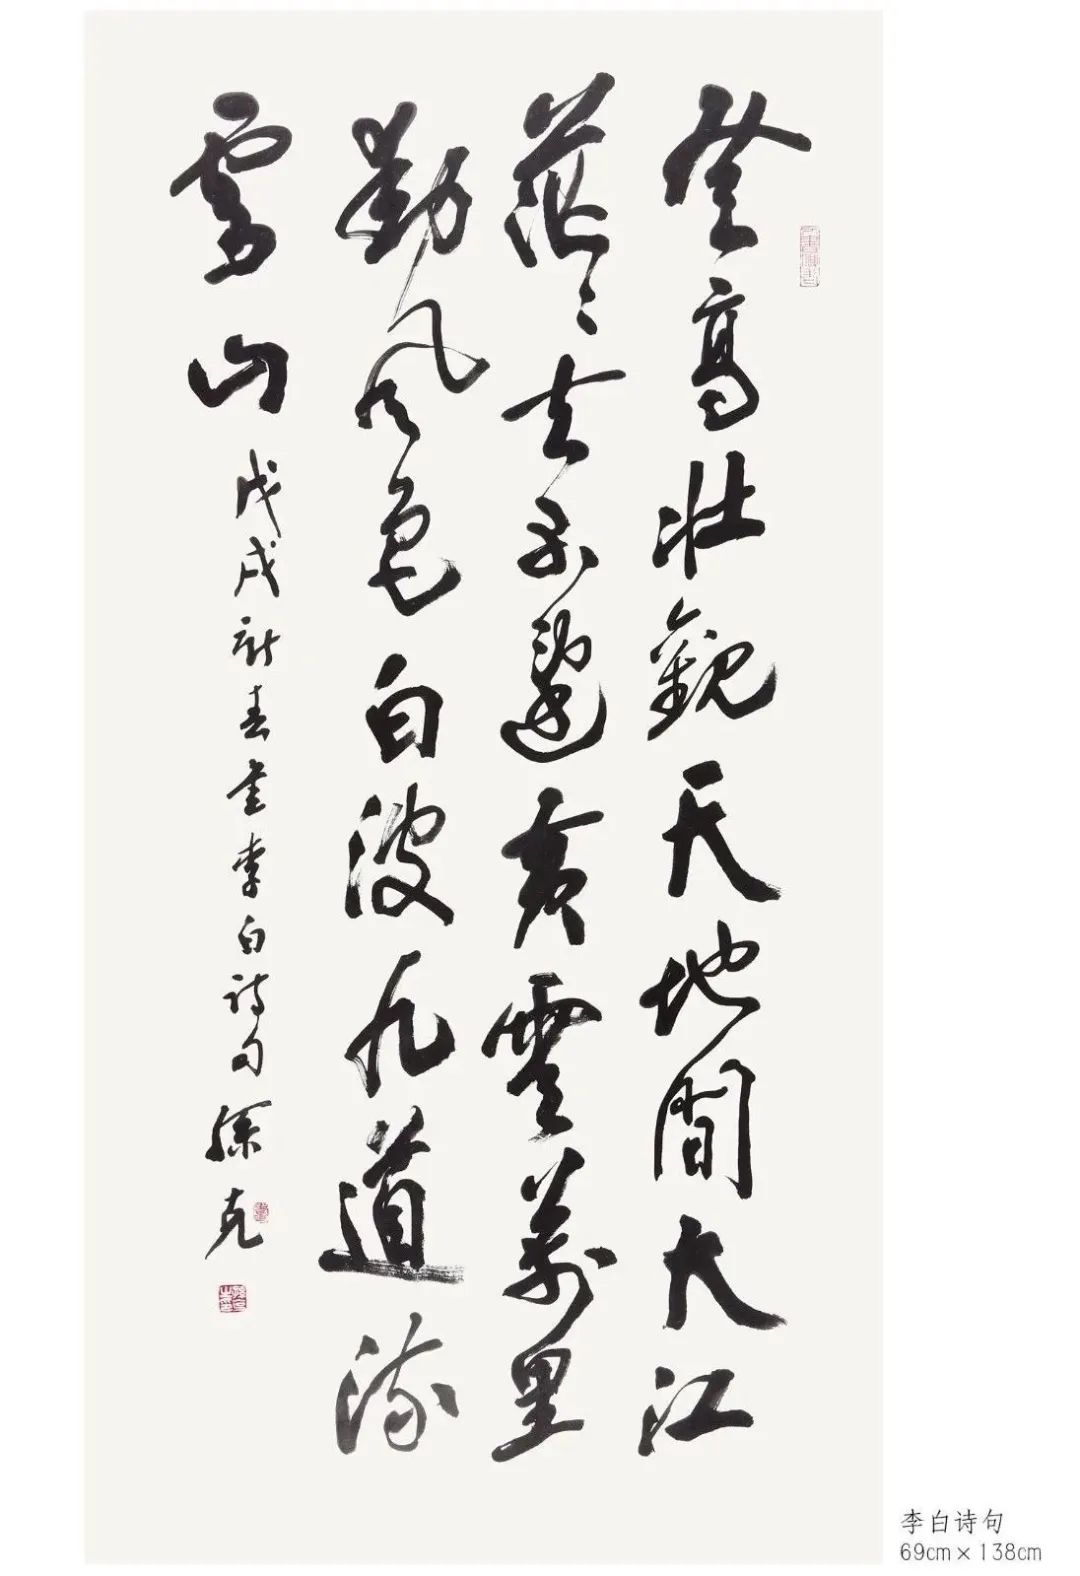 登高壯觀天地間大江
茫々去不還黃雲萬里
動風色白波九道流
雪山
戊戌新春書李白詩句 孫克
李白诗句
69cm×138cm